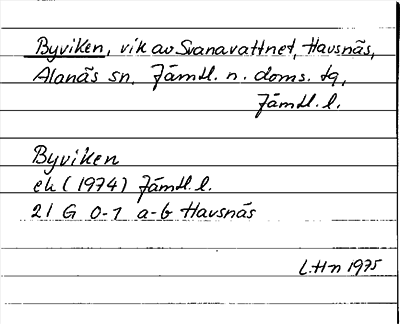 Byviken, vik av Svanavattnet, Havsnäs,
Alanäs sn. Jämtl. n. doms. tg,
Jämtl. l.
Byviken
ek (1974) Jämtl. l.
21 G 0-1 a-b Havsnäs
L.H-n 1975